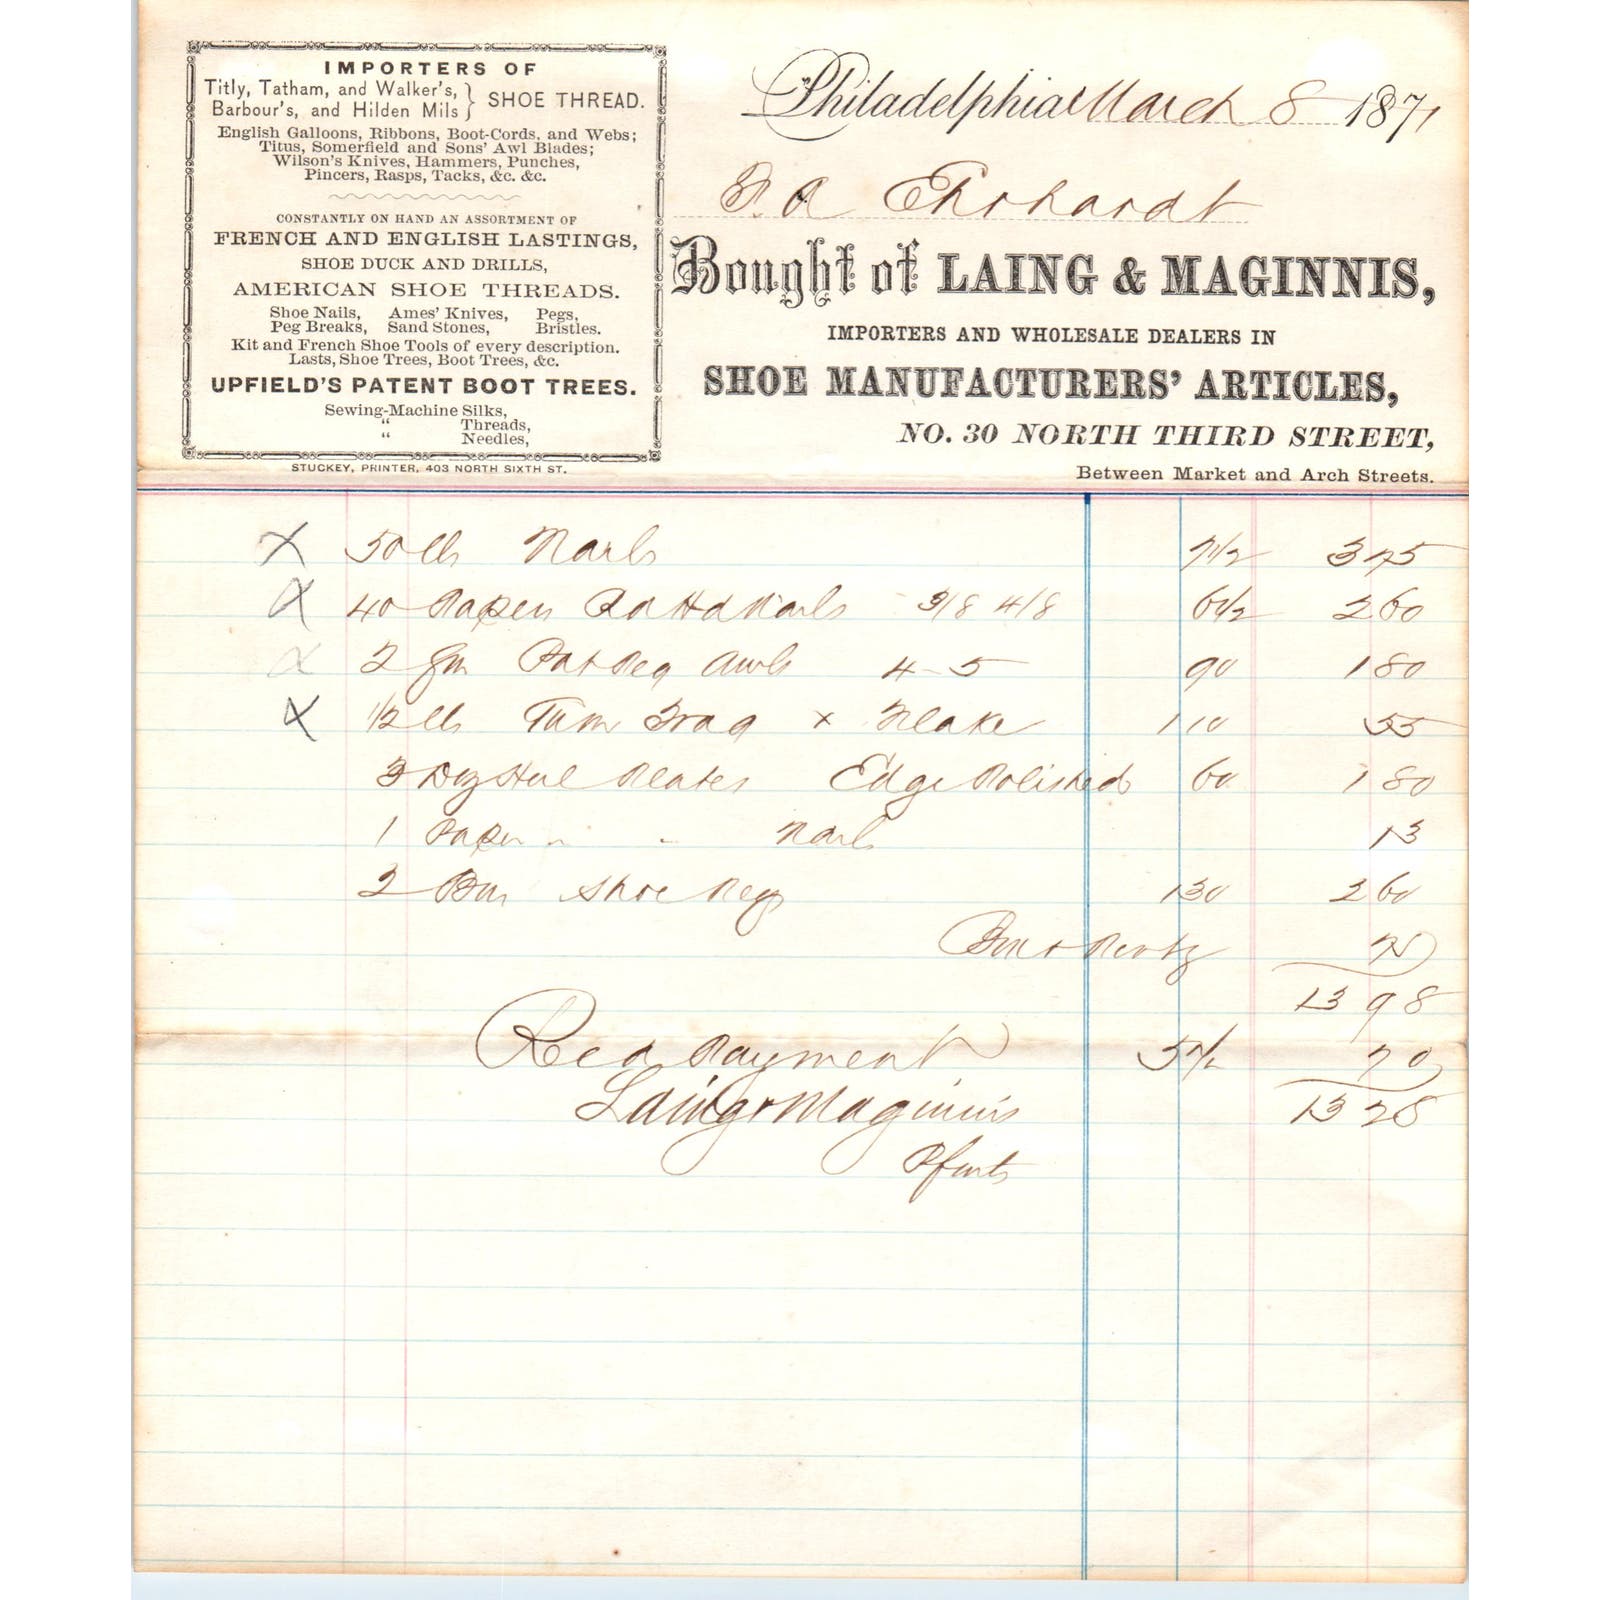 IMPORTERS OF
Titly, Tatham, and Walker's,
Barbour's, and Hilden Mils } SHOE THREAD.
English Galloons, Ribbons, Boot-Cords, and Webs;
Titus, Somerfield and Sons' Awl Blades;
Wilson's Knives, Hammers, Punches,
Pincers, Rasps, Tacks, &c. &c.
CONSTANTLY ON HAND AN ASSORTMENT OF
FRENCH AND ENGLISH LASTINGS,
SHOE DUCK AND DRILLS,
AMERICAN SHOE THREADS.
Shoe Nails, Ames' Knives, Pegs,
Peg Breaks, Sand Stones, Bristles.
Kit and French Shoe Tools of every description.
Lasts, Shoe Trees, Boot Trees, &c.
UPFIELD'S PATENT BOOT TREES.
Sewing-Machine Silks,
" Threads,
" Needles,
STUCKEY, PRINTER, 403 NORTH SIXTH ST.
Philadelphia March 8 1871
Ehrhardt
Bought of LAING & MAGINNIS,
IMPORTERS AND WHOLESALE DEALERS IN
SHOE MANUFACTURERS' ARTICLES,
NO. 30 NORTH THIRD STREET,
Between Market and Arch Streets.
X 50 lb Nails 7 1/2 3 75
X 40 Papers Rd Hd Nails 3/8 4/8 6 1/2 2 60
X 2 Gro Pat Peg Awls 4-5 90 1 80
X 1/2 lb 110 55
3 Doz Heel Plates Edge Polished 60 1 80
1 Paper " " Nails 13
2 Bus Shoe Pegs 130 2 60
75
13 98
Recd Payment 5% 70
Laing & Maginnis 13 28